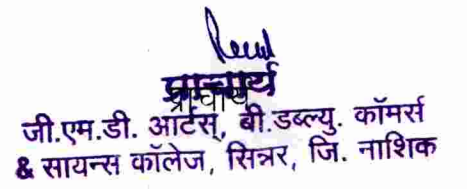 प्राचार्य
जी.एम.डी. आर्टस्, बी.डब्ल्यु. कॉमर्स
& सायन्स कॉलेज, सिन्नर, जि. नाशिक